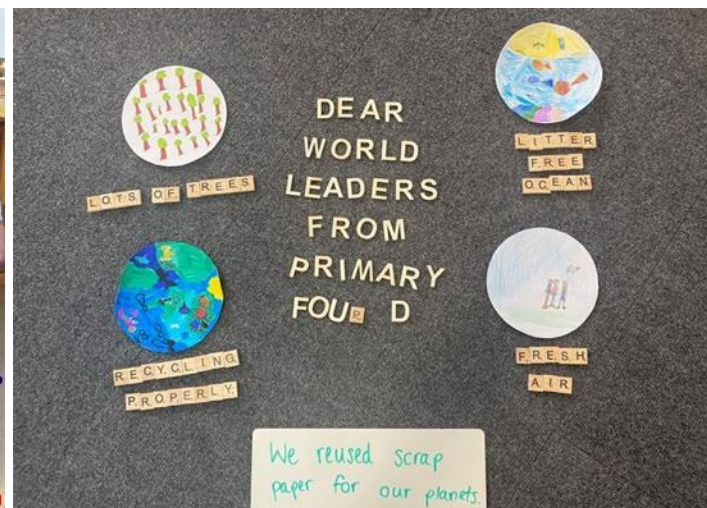 DEAR
WORLD
LEADERS
FROM
PRIMARY
FOUR D
LOTS OF TREES
LITTER
FREE
OCEAN
RECYCLING
PROPERLY
FRESH
AIR
We reused scrap
paper for our planets.